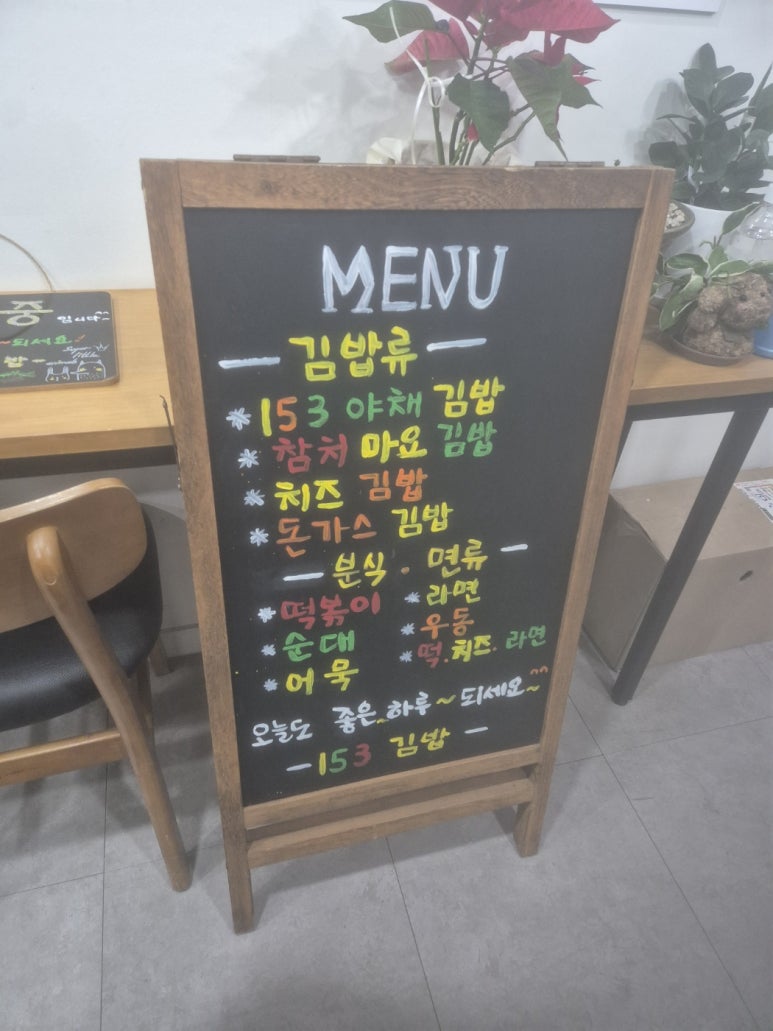 MENU
— 김밥류 —
* 153 야채 김밥
* 참처 마요 김밥
* 치즈 김밥
* 돈가스 김밥
— 분식 . 면류 —
* 떡볶이
* 순대
* 어묵
* 라면
* 우동
* 떡.치즈.라면
오늘도 좋은 하루~되세요~^^
— 153 김밥 —
중 입니다^^
~되세요
밥~